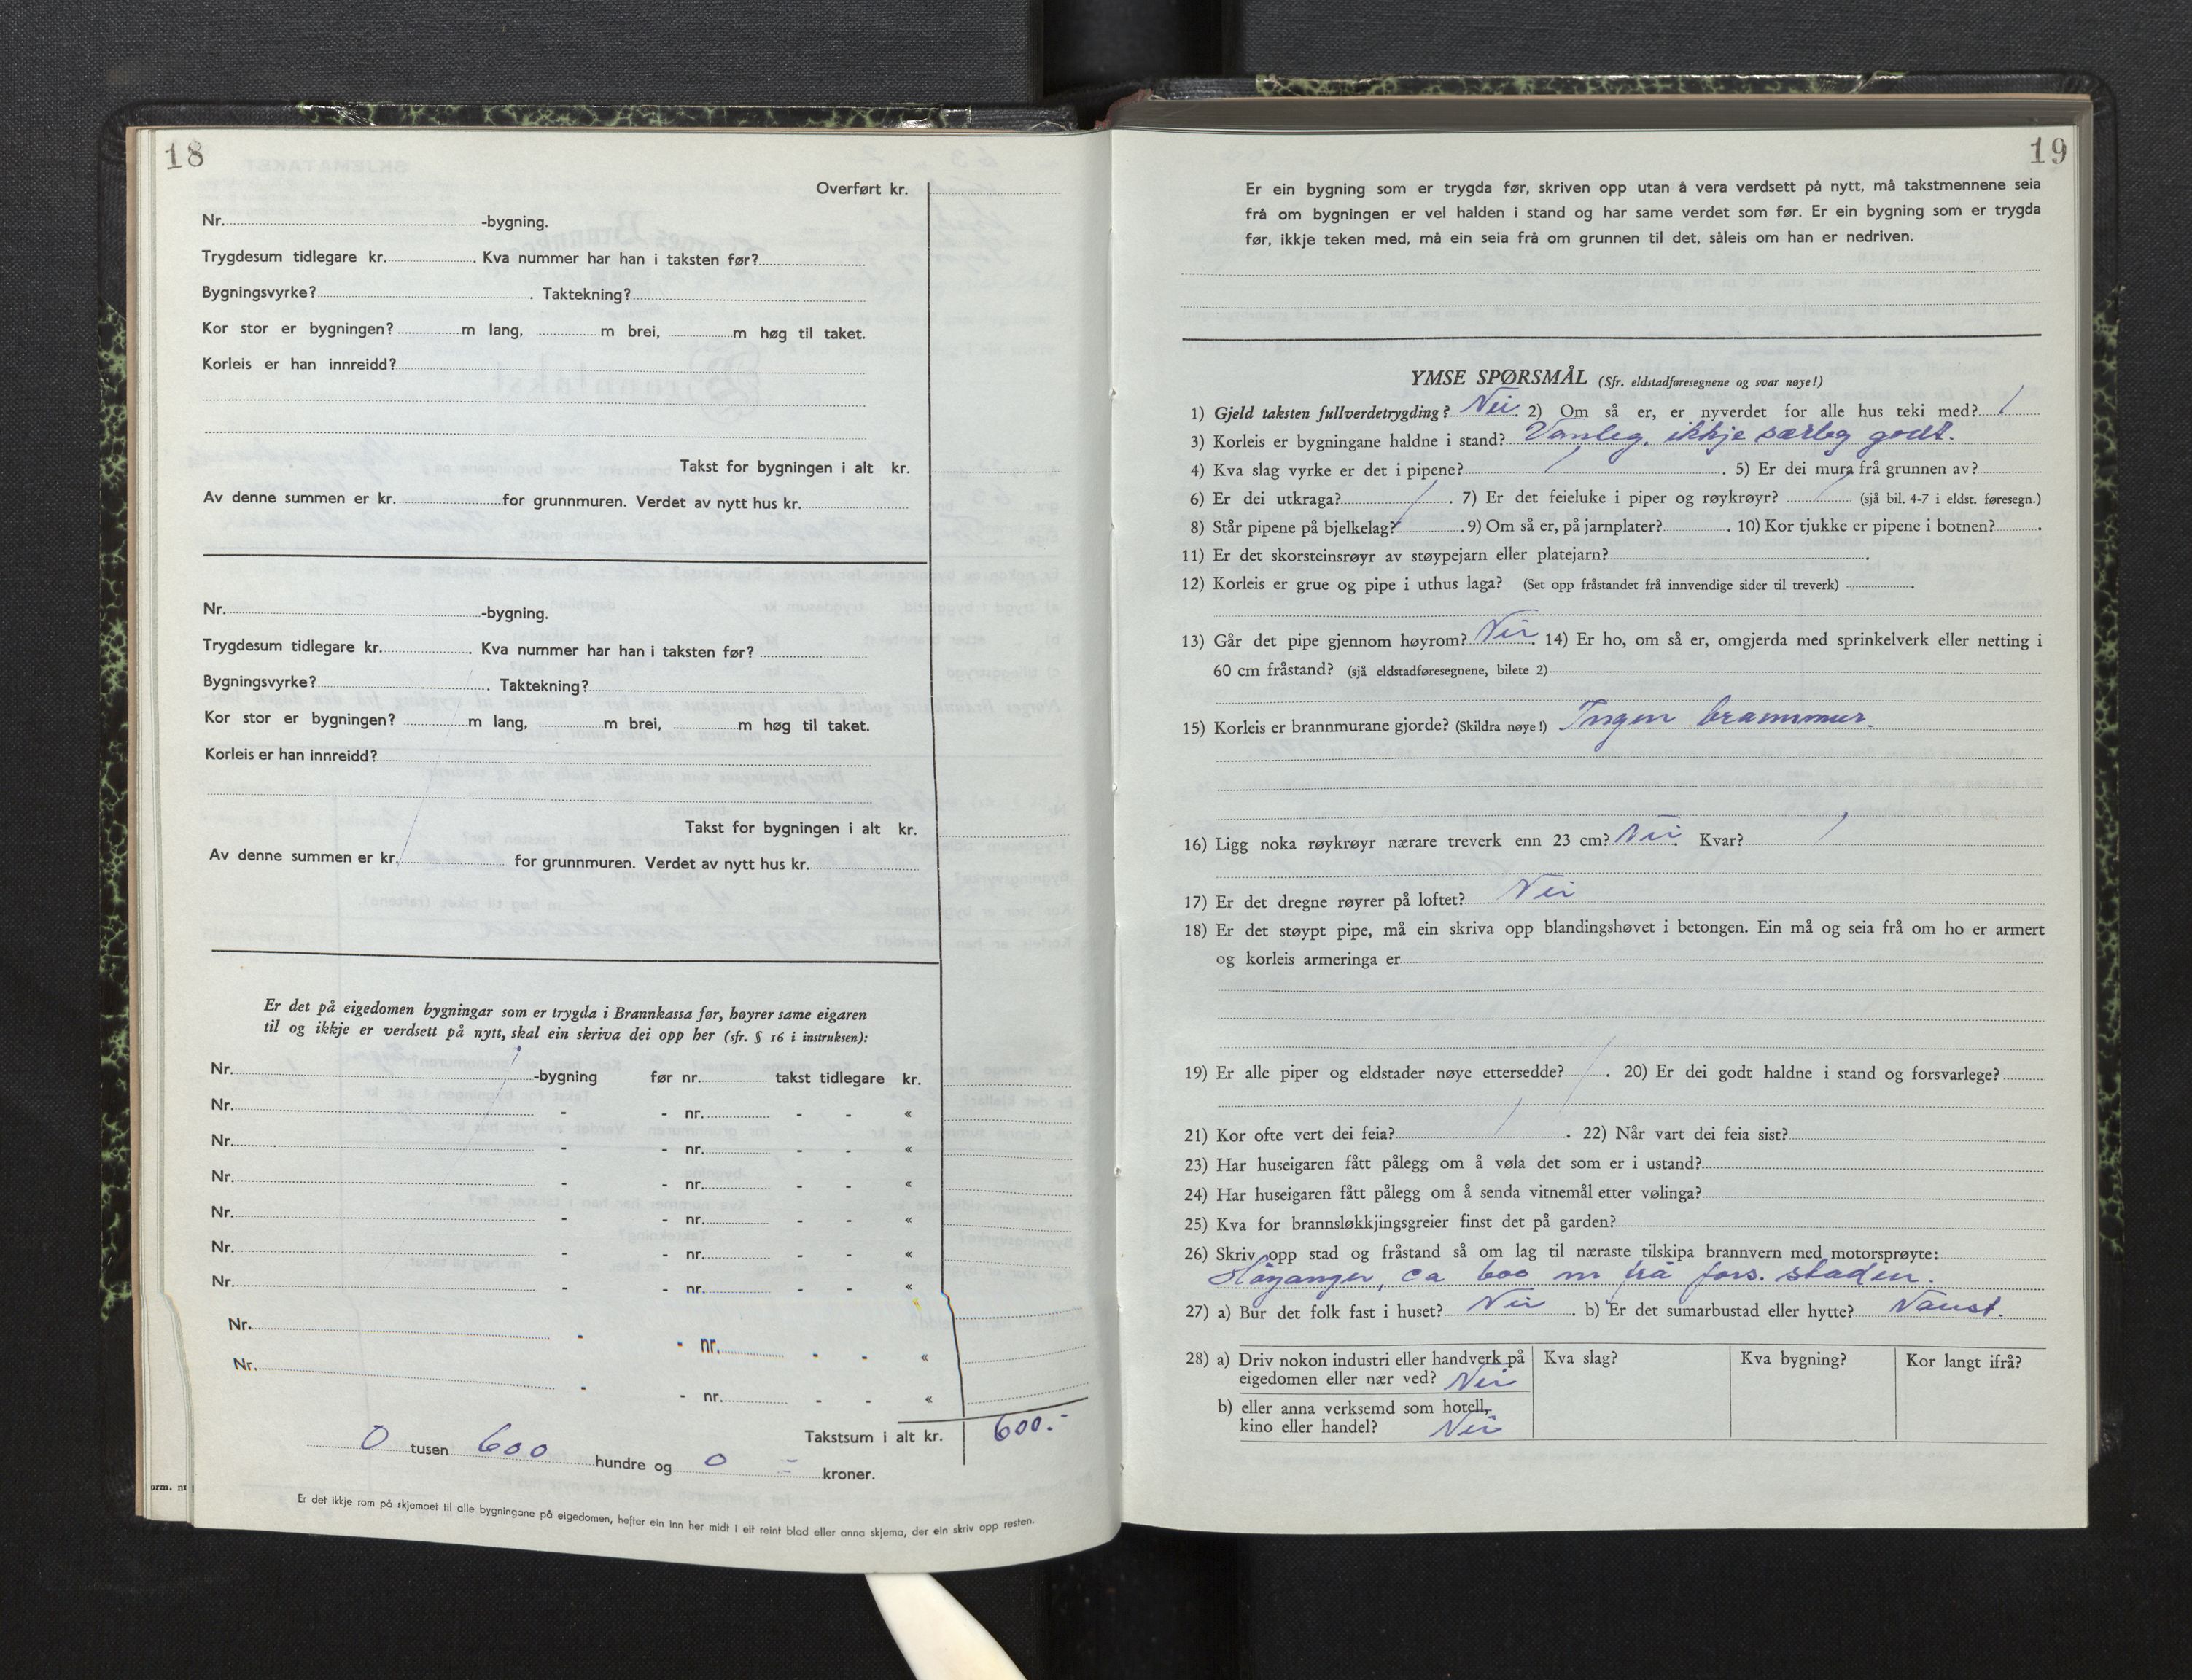 18
Overført kr.
Nr. -bygning.
Trygdesum tidlegare kr. Kva nummer har han i taksten før?
Bygningsvyrke? Taktekning?
Kor stor er bygningen? m lang, m brei, m høg til taket.
Korleis er han innreidd?
Takst for bygningen i alt kr.
Av denne summen er kr. for grunnmuren. Verdet av nytt hus kr.
Nr. -bygning.
Trygdesum tidlegare kr. Kva nummer har han i taksten før?
Bygningsvyrke? Taktekning?
Kor stor er bygningen? m lang, m brei, m høg til taket.
Korleis er han innreidd?
Takst for bygningen i alt kr.
Av denne summen er kr. for grunnmuren. Verdet av nytt hus kr.
Er det på eigedomen bygningar som er trygda i Brannkassa før, høyrer same eigaren
til og ikkje er verdsett på nytt, skal ein skriva dei opp her (sfr. § 16 i instruksen):
Nr. -bygning før nr. takst tidlegare kr.
Nr. - - nr. - - «
Nr. - - nr. - - «
Nr. - - nr. - - «
Nr. - - nr. - - «
Nr. - - nr. - - «
Nr. - - nr. - - «
Nr. - - nr. - - «
Nr. - - nr. - - «
Takstsum i alt kr. 600.-
0 tusen 600 hundre og 0 = kroner.
orm. nr
Er det ikkje rom på skjemaet til alle bygningane på eigedomen, hefter ein inn her midt i eit reint blad eller anna skjema, der ein skriv opp resten.
19
Er ein bygning som er trygda før, skriven opp utan å vera verdsett på nytt, må takstmennene seia
frå om bygningen er vel halden i stand og har same verdet som før. Er ein bygning som er trygda
før, ikkje teken med, må ein seia frå om grunnen til det, såleis om han er nedriven.
YMSE SPØRSMÅL (Sfr. eldstadføresegnene og svar nøye!)
1) Gjeld taksten fullverdetrygding? Nei. 2) Om så er, er nyverdet for alle hus teki med? /
3) Korleis er bygningane haldne i stand? Vanleg, ikkje særleg godt.
4) Kva slag vyrke er det i pipene? / . 5) Er dei mura frå grunnen av?
6) Er dei utkraga? / . 7) Er det feieluke i piper og røykrøyr? / (sjå bil. 4-7 i eldst. føresegn.)
8) Står pipene på bjelkelag? . 9) Om så er, på jarnplater? . 10) Kor tjukke er pipene i botnen? .
11) Er det skorsteinsrøyr av støypejarn eller platejarn? .
12) Korleis er grue og pipe i uthus laga? (Set opp fråstandet frå innvendige sider til treverk) .
13) Går det pipe gjennom høyrom? Nei. 14) Er ho, om så er, omgjerda med sprinkelverk eller netting i
60 cm fråstand? (sjå eldstadføresegnene, bilete 2)
15) Korleis er brannmurane gjorde? (Skildra nøye!) Ingen brannmur.
16) Ligg noka røykrøyr nærare treverk enn 23 cm? Nei. Kvar? /
17) Er det dregne røyrer på loftet? Nei
18) Er det støypt pipe, må ein skriva opp blandingshøvet i betongen. Ein må og seia frå om ho er armert
og korleis armeringa er
19) Er alle piper og eldstader nøye ettersedde? / . 20) Er dei godt haldne i stand og forsvarlege?
21) Kor ofte vert dei feia? / . 22) Når vart dei feia sist?
23) Har huseigaren fått pålegg om å vøla det som er i ustand?
24) Har huseigaren fått pålegg om å senda vitnemål etter vølinga?
25) Kva for brannsløkkjingsgreier finst det på garden?
26) Skriv opp stad og fråstand så om lag til næraste tilskipa brannvern med motorsprøyte:
Höyanger, ca 600 m frå fors. staden.
27) a) Bur det folk fast i huset? Nei . b) Er det sumarbustad eller hytte? Naust.
28) a) Driv nokon industri eller handverk på Kva slag? Kva bygning? Kor langt ifrå?
eigedomen eller nær ved? Nei
b) eller anna verksemd som hotell,
kino eller handel? Nei